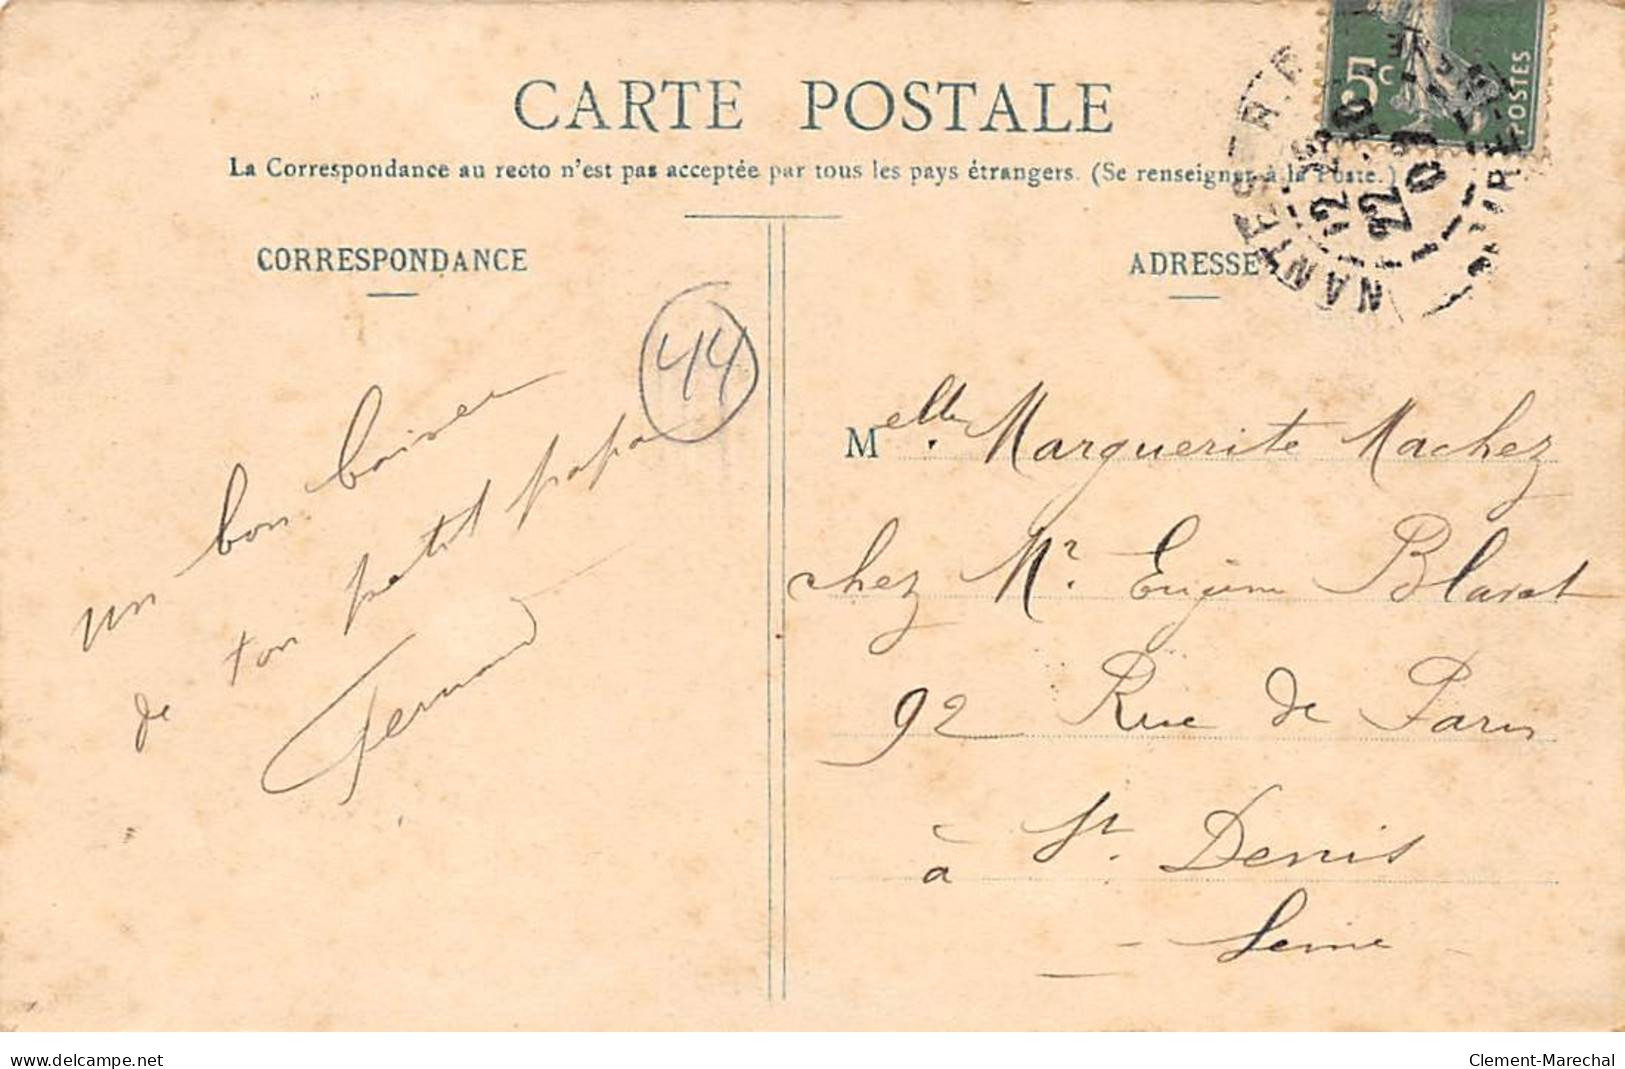 CARTE POSTALE
La Correspondance au recto n'est pas acceptée par tous les pays étrangers. (Se renseigner à la Poste.)
CORRESPONDANCE
ADRESSE
5c
POSTES
NANTES R.P.
12 
22 
09
44
un bon baiser
de ton petit papa
Fernand
Melle. Marguerite Machez
chez Mr. Eugène
92 Rue de Paris
à St. Denis
Seine
www.delcampe.net
Clement-Marechal